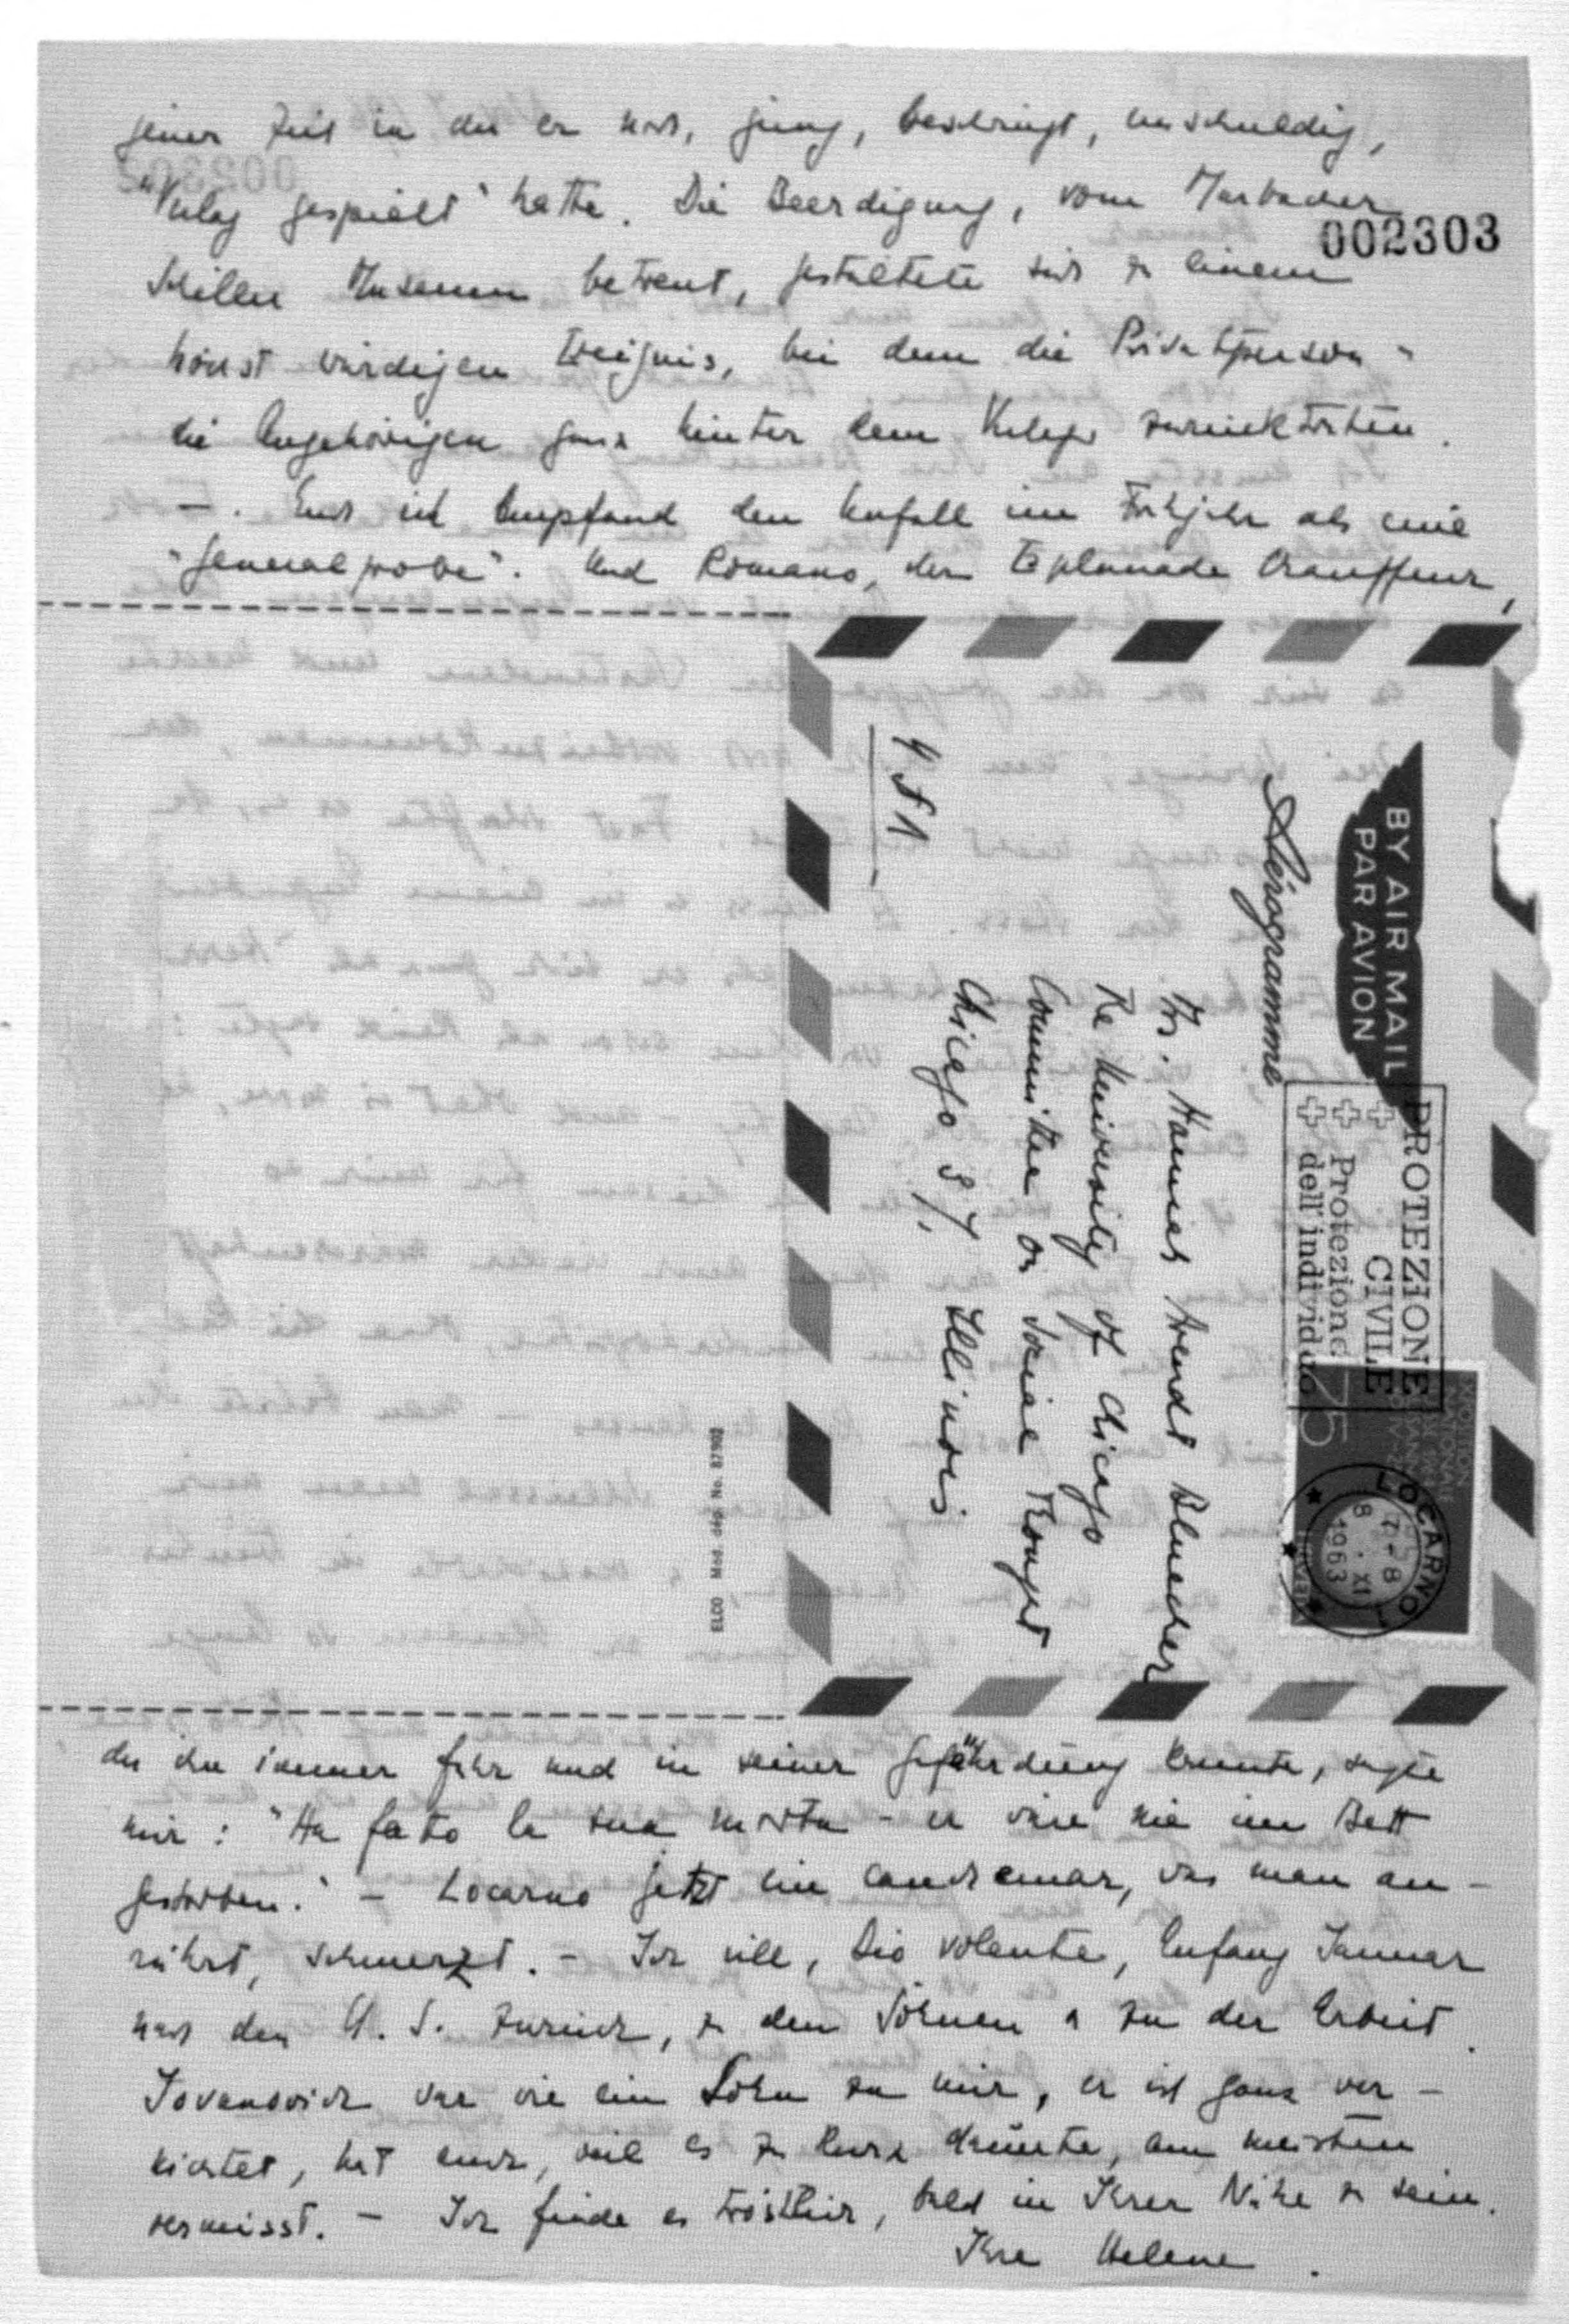 jener Zeit in der er noch, jung, beschwingt, unschuldig,
"Verlag gespielt" hatte. Die Beerdigung, vom Marbacher
002303
Schiller Museum betreut, gestaltete sich zu einem
höchst würdigen Ereignis, bei dem die Privatperson u
die Angehörigen ganz hinter dem Verleger zurücktraten.
–. Auch ich empfand den Unfall im Frühjahr als eine
"Generalprobe". Und Romano, der Esplanade Chauffeur,
BY AIR MAIL
PAR AVION
Aérogramme
PROTEZIONE
CIVILE
Protezione
dell'individuo
75
LOCARNO 1
7-8
8. XI
1963
Dr. Hannah Arendt Bluecher
The University of Chicago
Committee on Social Thought
Chicago 37, Illinois
USA
ELCO Mod. dép. No. 87902
der ihn immer fuhr und in seiner Gefährdung kannte, sagte
mir: "Ha fatto la sua morte – er wäre nie im Bett
gestorben." – Locarno jetzt ein Cauchemar, was man an-
rührt, schmerzt. – Ich will, Dio volente, Anfang Januar
nach den U.S. zurück, zu den Söhnen u zu der Arbeit.
Jovanovich war wie ein Sohn zu mir, er ist ganz ver-
nichtet, hat euch, weil es zu kurz dauerte, am meisten
vermisst. – Ich finde es tröstlich, bald in Ihrer Nähe zu sein.
Ihre Helene.